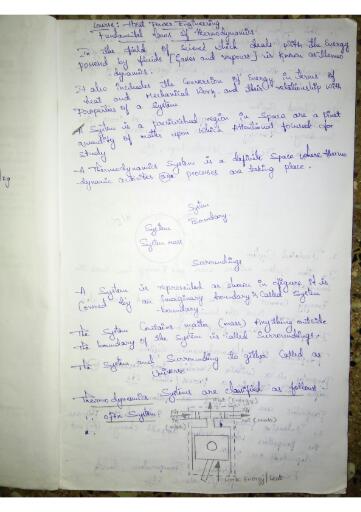 Course:- Heat Power Engineering
Fundamental laws of thermodynamics:
In the field of Science which deals with the Energy
powered by fluids (gases and vapours) is known as thermo
dynamics.
It also includes the Conversion of Energy in terms of
heat and Mechanical Work and their relationship with
Properties of a System
A System is a region in Space are a
quantity of matter upon which Attentional focused for
study
A Thermodynamics System is a definite Space where thermo
dynamic processes are taking place.
System
Boundary
System
System mass
Surroundings
A System is represented as shown in figure. It is
Covered by an Imaginary boundary is Called System
boundary
The System Contains matter (mass) Anything outside
the boundary of the System is Called Surroundings.
The System and Surrounding together Called as
Universe
Thermodynamics Systems are classified as follows:
open System
out (mass)
Work Energy/heat